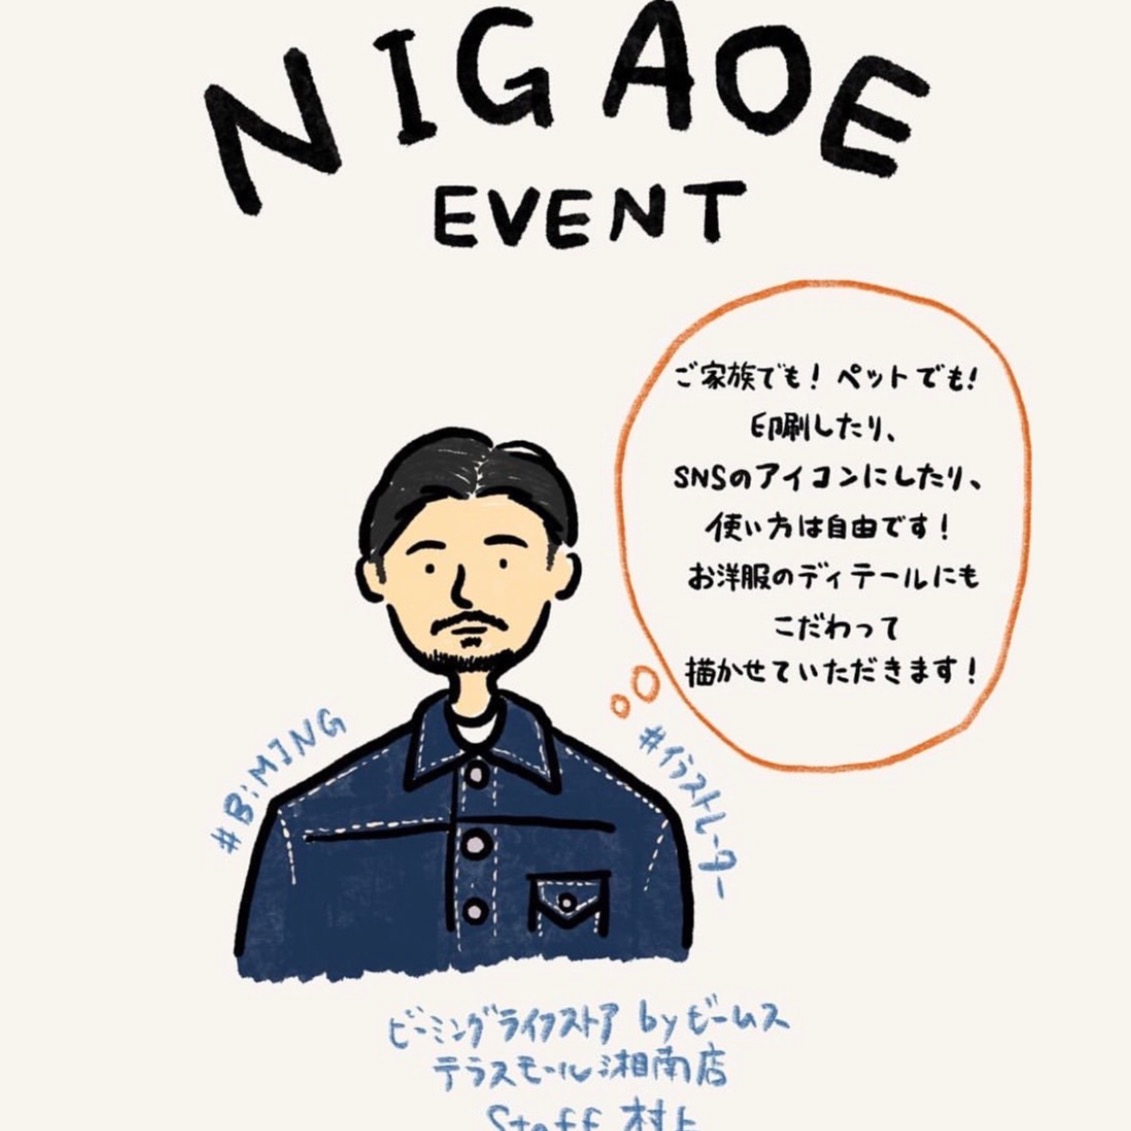 NIGAOE
EVENT
ご家族でも！ペットでも!
印刷したり、
SNSのアイコンにしたり、
使い方は自由です！
お洋服のディテールにも
こだわって
描かせていただきます！
#B:MING
#イラストレーター
ビーミングライフストア by ビームス
テラスモール湘南店
Staff 村上